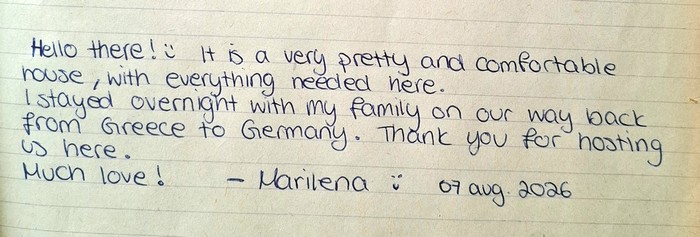 Hello there! :) It is a very pretty and comfortable
house, with everything needed here.
I stayed overnight with my family on our way back
from Greece to Germany. Thank you for hosting
us here.
Much love! – Marilena :) 07 aug. 2026